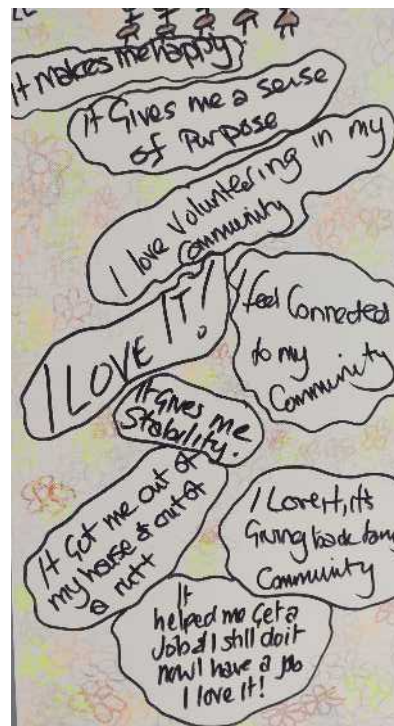 It makes me happy.
It Gives me a sense
of Purpose
I love Volunteering in my
Community
I LOVE IT!
I feel Connected
to my
Community
It Gives me
Stability.
It Got me out of
my house & out of
a rutt
I Love it, it's
Giving back to my
Community
It
helped me Get a
Job & I still do it
now I have a job
I love it!